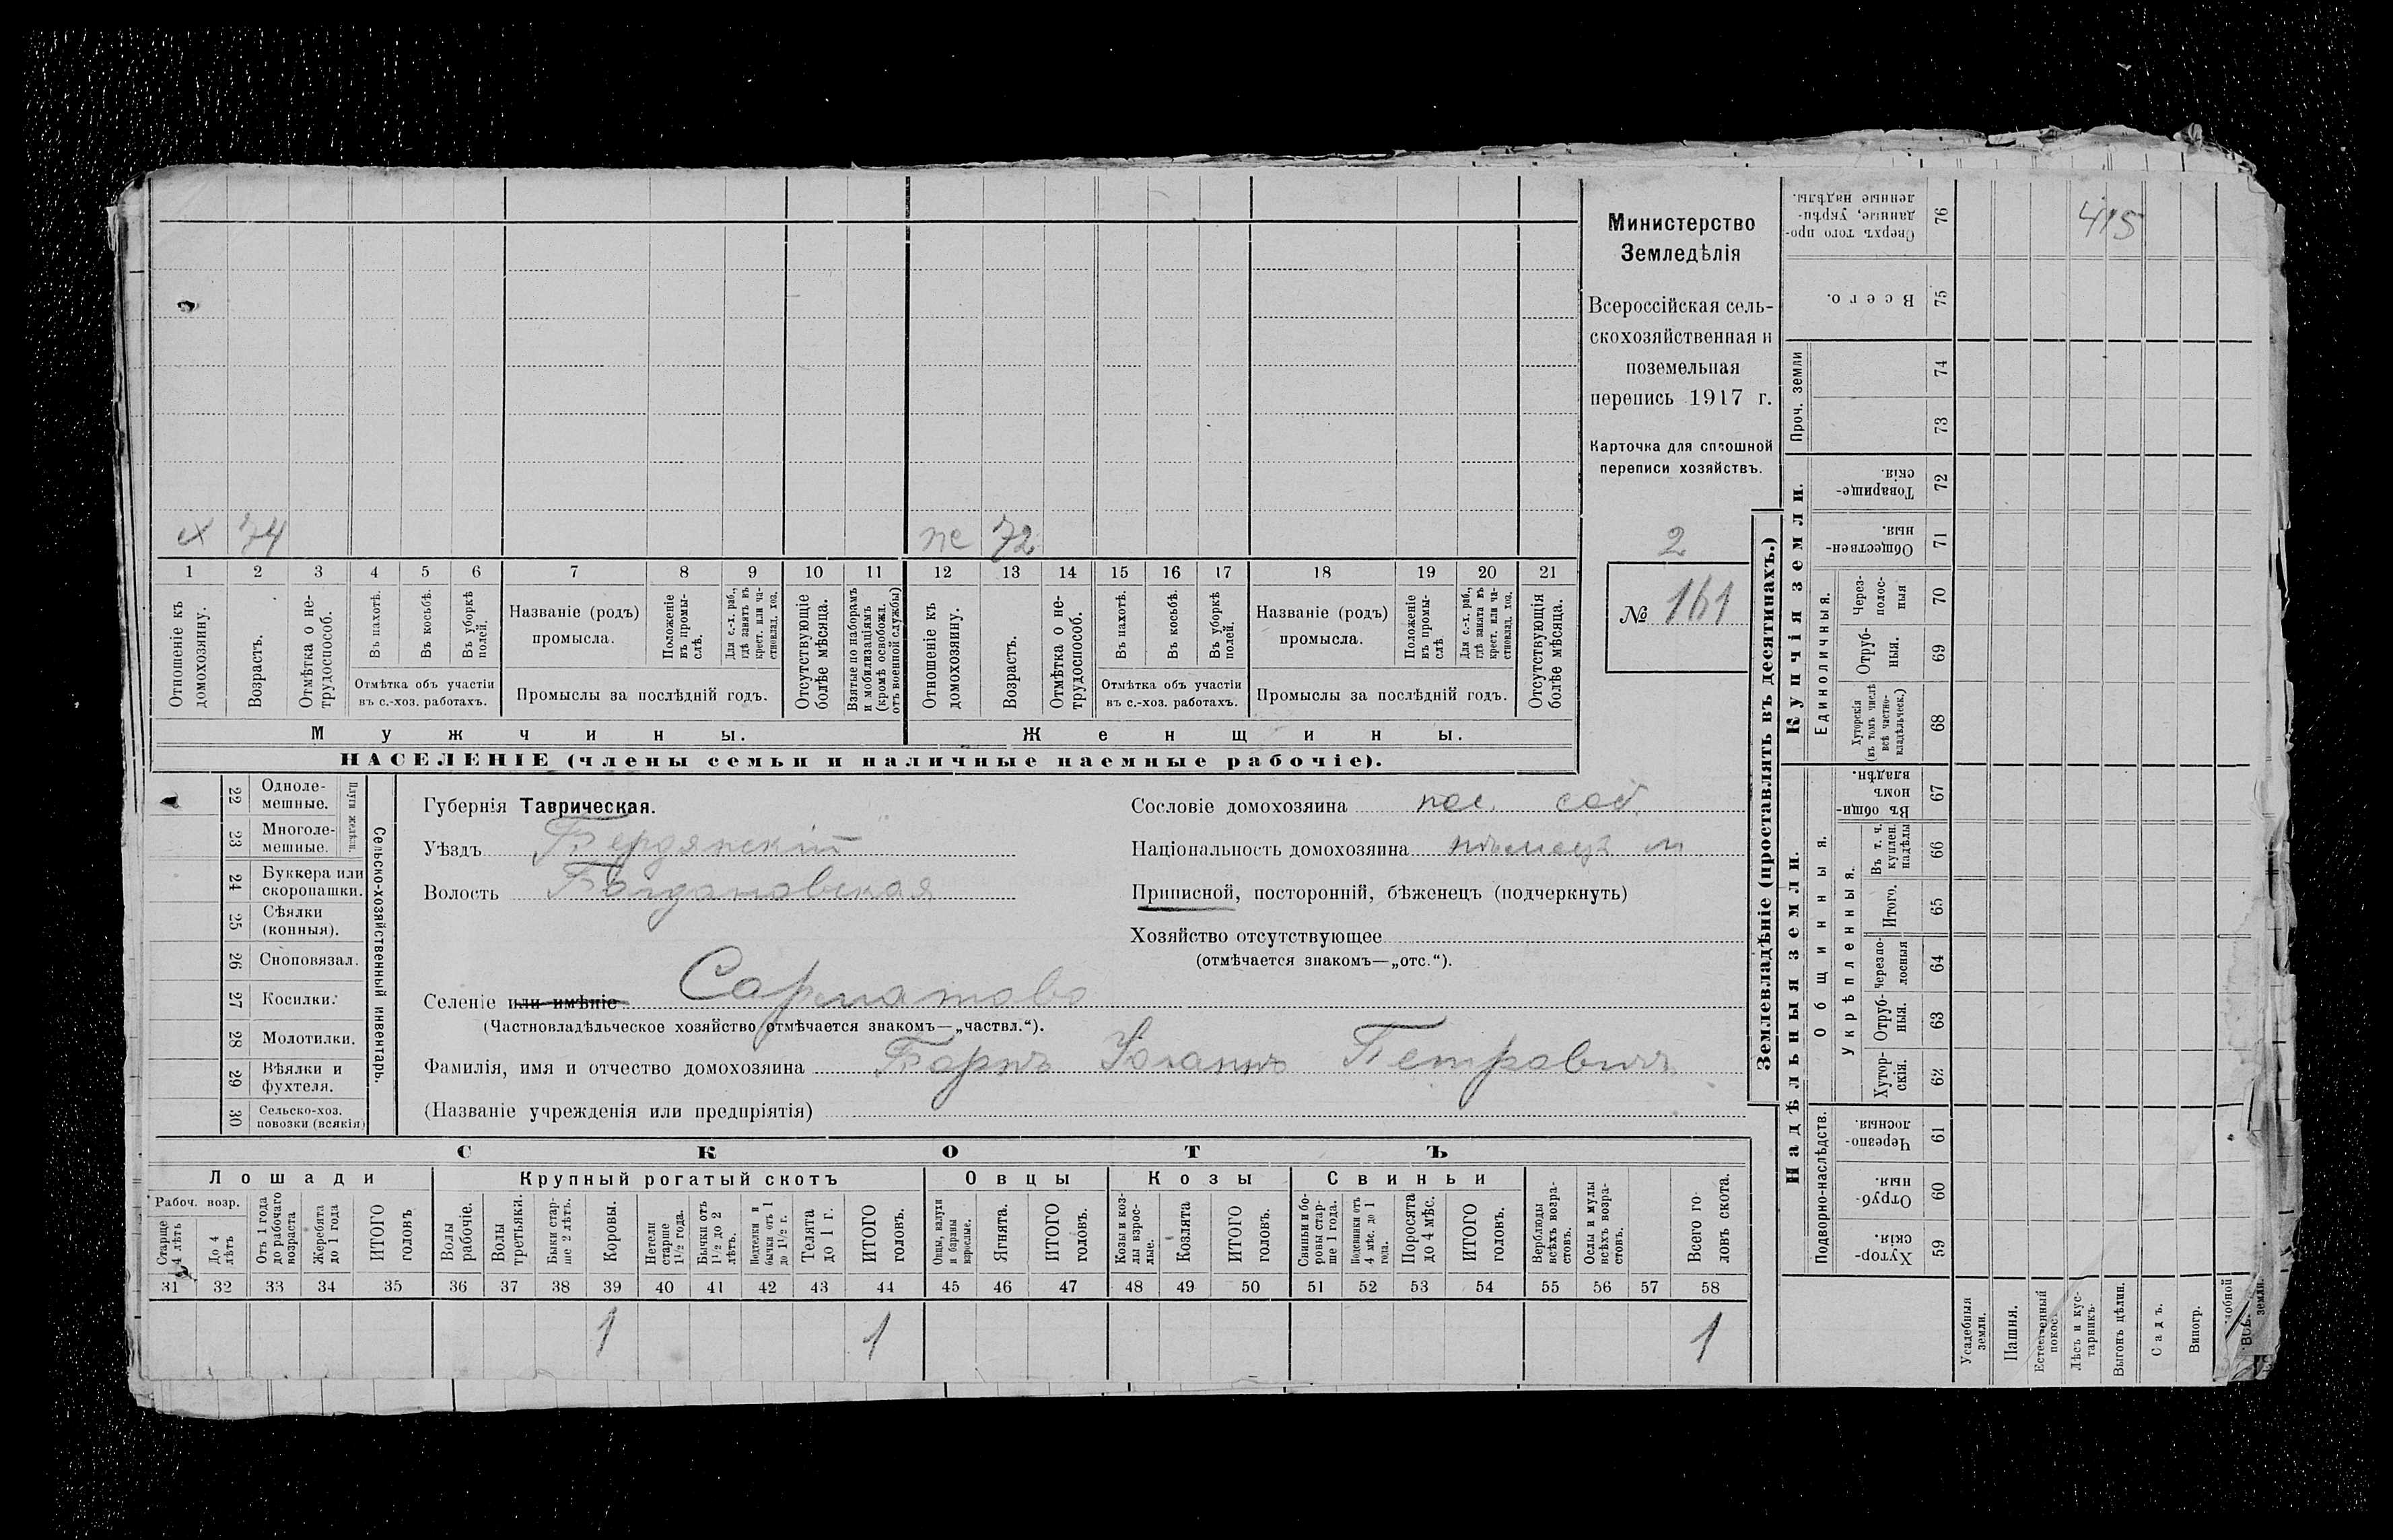 х 74 ж 72
1 2 3 4 5 6 7 8 9 10 11 12 13 14 15 16 17 18 19 20 21
Отношеніе къ домохозяину.
Возрастъ.
Отмѣтка о не-трудоспособ.
Въ пахотѣ.
Въ косьбѣ.
Въ уборкѣ полей.
Отмѣтка объ участіи
въ с.-хоз. работахъ.
Названіе (родъ)
промысла.
Положеніе въ промы-слѣ.
Для с.-х. раб., гдѣ занятъ въ крест. или ча-стновлад. хоз.
Промыслы за послѣдній годъ.
Отсутствующіе болѣе мѣсяца.
Взятые по наборамъ и мобилизаціямъ (кромѣ освобожд. отъ военной службы)
Отношеніе къ домохозяину.
Возрастъ.
Отмѣтка о не-трудоспособ.
Въ пахотѣ.
Въ косьбѣ.
Въ уборкѣ полей.
Отмѣтка объ участіи
въ с.-хоз. работахъ.
Названіе (родъ)
промысла.
Положеніе въ промы-слѣ.
Для с.-х. раб., гдѣ занята въ крест. или ча-стновлад. хоз.
Промыслы за послѣдній годъ.
Отсутствующія болѣе мѣсяца.
Мужчины. Женщины.
НАСЕЛЕНІЕ (члены семьи и наличные наемные рабочіе).
Министерство
Земледѣлія
Всероссійская сель-
скохозяйственная и
поземельная
перепись 1917 г.
Карточка для сплошной
переписи хозяйствъ.
2
№ 161
22 Одноле-мешные.
23 Многоле-мешные.
Плуги желѣзн.
24 Буккера или скоропашки.
25 Сѣялки (конныя).
26 Сноповязал.
27 Косилки.
28 Молотилки.
29 Вѣялки и фухтеля.
30 Сельско-хоз. повозки (всякія)
Сельско-хозяйственный инвентарь.
Губернія Таврическая.
Уѣздъ Бердянскій
Волость Богдановская
Сословіе домохозяина пос. соб.
Національность домохозяина нѣмецъ м
Приписной, посторонній, бѣженецъ (подчеркнуть)
Хозяйство отсутствующее
(отмѣчается знакомъ—„отс.“).
Селеніе или имѣніе Сарматово
(Частновладѣльческое хозяйство отмѣчается знакомъ—„частвл.“).
Фамилія, имя и отчество домохозяина Варнъ Іоганнъ Петровичъ
(Названіе учрежденія или предпріятія)
СКОТЪ
Лошади Крупный рогатый скотъ Овцы Козы Свиньи
Рабоч. возр.
Старше 4 лѣтъ
До 4 лѣтъ
Отъ 1 года до рабочаго возраста
Жеребята до 1 года
ИТОГО головъ
Волы рабочіе.
Волы третьяки.
Быки стар-ше 2 лѣтъ.
Коровы.
Нетели старше 1½ года.
Бычки отъ 1½ до 2 лѣтъ.
Подтелки и бычки отъ 1 до 1½ г.
Телята до 1 г.
ИТОГО головъ.
Овцы, валухи и бараны взрослые.
Ягнята.
ИТОГО головъ.
Козы и коз-лы взрос-лые.
Козлята
ИТОГО головъ.
Свиньи и бо-ровы стар-ше 1 года.
Подсвинки отъ 4 мѣс. до 1 года.
Поросята до 4 мѣс.
ИТОГО головъ.
Верблюды всѣхъ возра-стовъ.
Ослы и мулы всѣхъ возра-стовъ.
Всего го-ловъ скота.
31 32 33 34 35 36 37 38 39 40 41 42 43 44 45 46 47 48 49 50 51 52 53 54 55 56 57 58
1 1 1
Землевладѣніе (проставлять въ десятинахъ.)
Надѣльныя земли.
Купчія земли.
Проч. земли
Подворно-наслѣдств.
Общинныя.
Укрѣпленныя.
Единоличныя.
Сверхъ того про-данные, укрѣп-ленные надѣлы. 76
415
Всего. 75
74
73
Товарище-скія. 72
Обществен-ныя. 71
Через-полос-ныя 70
Отруб-ныя. 69
Хуторскія (въ томъ числѣ всѣ частно-владѣльческ.) 68
Въ общи-номъ владѣн. 67
Въ т. ч. куплен. надѣлы 66
Итого. 65
Черезпо-лосныя 64
Отруб-ныя. 63
Хутор-скія. 62
Черезпо-лосныя. 61
Отруб-ныя. 60
Хутор-скія. 59
Усадебныя земли.
Пашня.
Естественный покосъ
Лѣсъ и кус-тарникъ.
Выгонъ цѣлин.
Садъ.
Виногр.
земли.